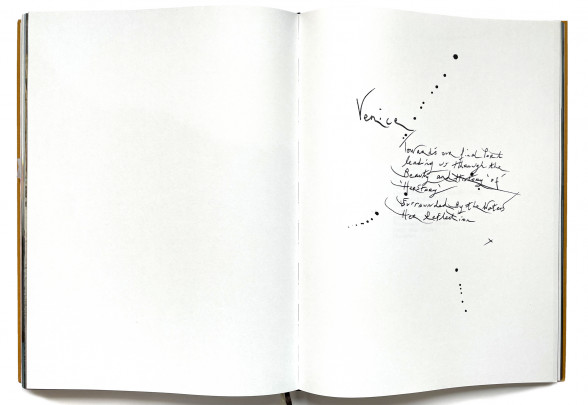 Venice
Towards our find Point
leading us through the
Beauty and History of
'Herstory'
Surrounded By the Waters
Her Reflection